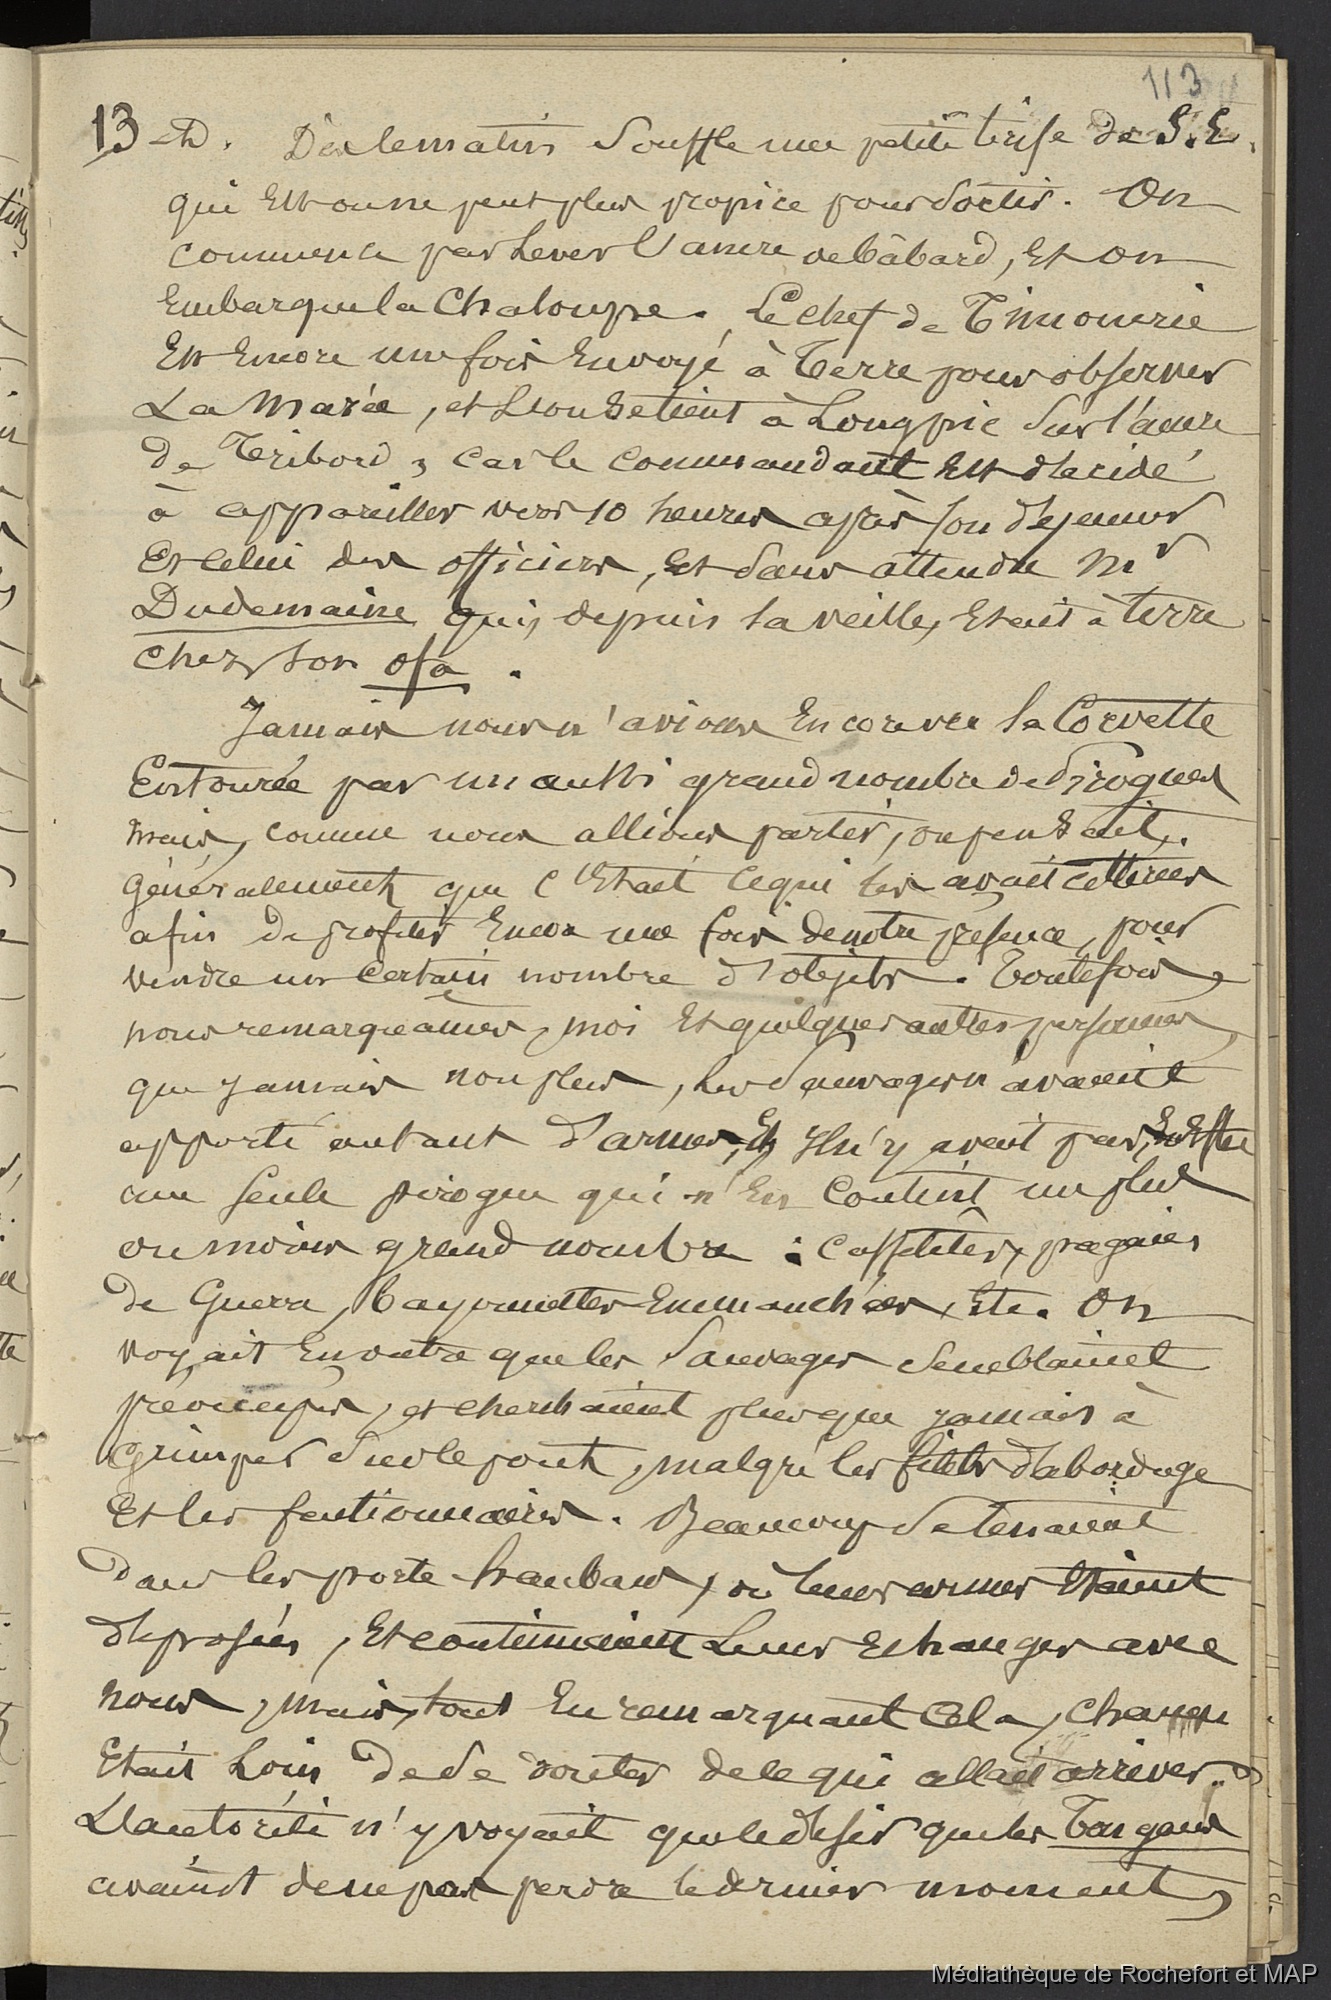 113
13 D. Dès le matin souffle une petite brise de S.E.
qui est on ne peut plus propice pour sortir. On
commence par lever l'ancre de bâbord, et on
embarque la chaloupe. Le chef de Timonerie
est encore une fois envoyé à Terre pour observer
La Marée, et l'on se tient à Long pic sur l'ancre
de Tribord, car le commandant est décidé
à appareiller vers 10 heures après son déjeuner
et celui des officiers, et sans attendre Mr
Dudemaine qui, depuis la veille, était à terre
chez son ofa.
Jamais nous n'avions encore vu la Corvette
Entourée par un aussi grand nombre de Pirogues
mais, comme nous allions partir, on pensait,
généralement que c'était ce qui les avait attirées
afin de profiter encore une fois de notre présence, pour
vendre un certain nombre d'objets. Toutefois,
nous remarquâmes, moi et quelques autres personnes,
que jamais non plus, les sauvages n'avaient
apporté autant d'armes, et il n'y avait pas,
une seule pirogue qui n'en contint un plus
ou moins grand nombre : casse-têtes, pagaies
de Guerre, bayonnettes emmanchées, etc. On
voyait en outre que les sauvages semblaient
préoccupés, et cherchaient plus que jamais à
grimper sur le pont, malgré les filets d'abordage
et les sentionnaires. Beaucoup se tenaient
dans les porte-haubans, où leurs armes étaient
déposées, et continuaient leurs échanges avec
nous, mais, tout en remarquant cela, chacun
était loin de se douter de ce qui allait arriver..
L'autorité n'y voyait que le désir que les Tongans
avaient de ne pas perdre le dernier moment,
Médiathèque de Rochefort et MAP